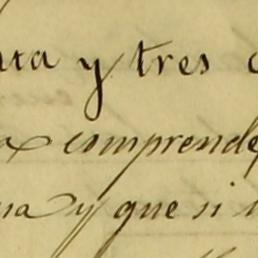 y tres
comprende
y que si